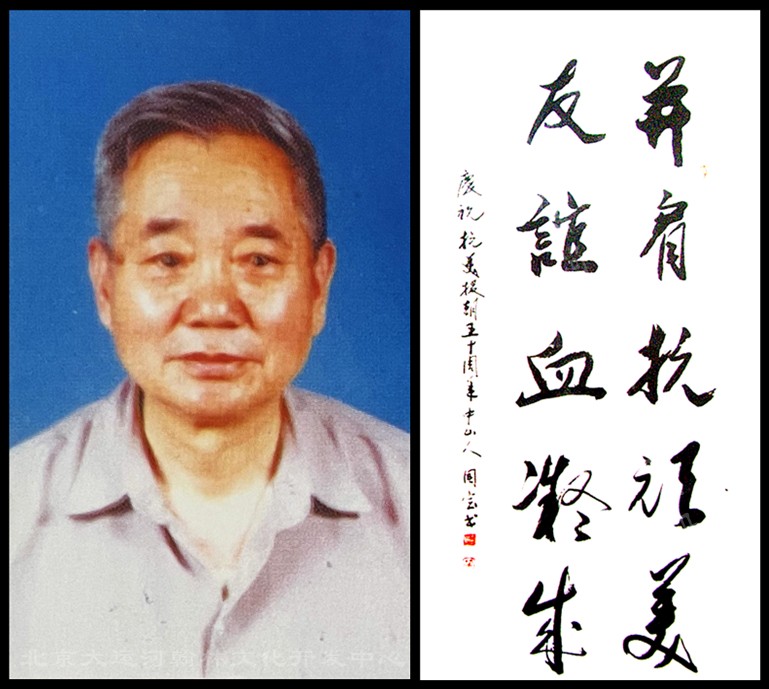 并肩抗頑美
友誼血凝成
慶祝抗美援朝五十周年中山人國宝书
北京大运河翰文化开发中心